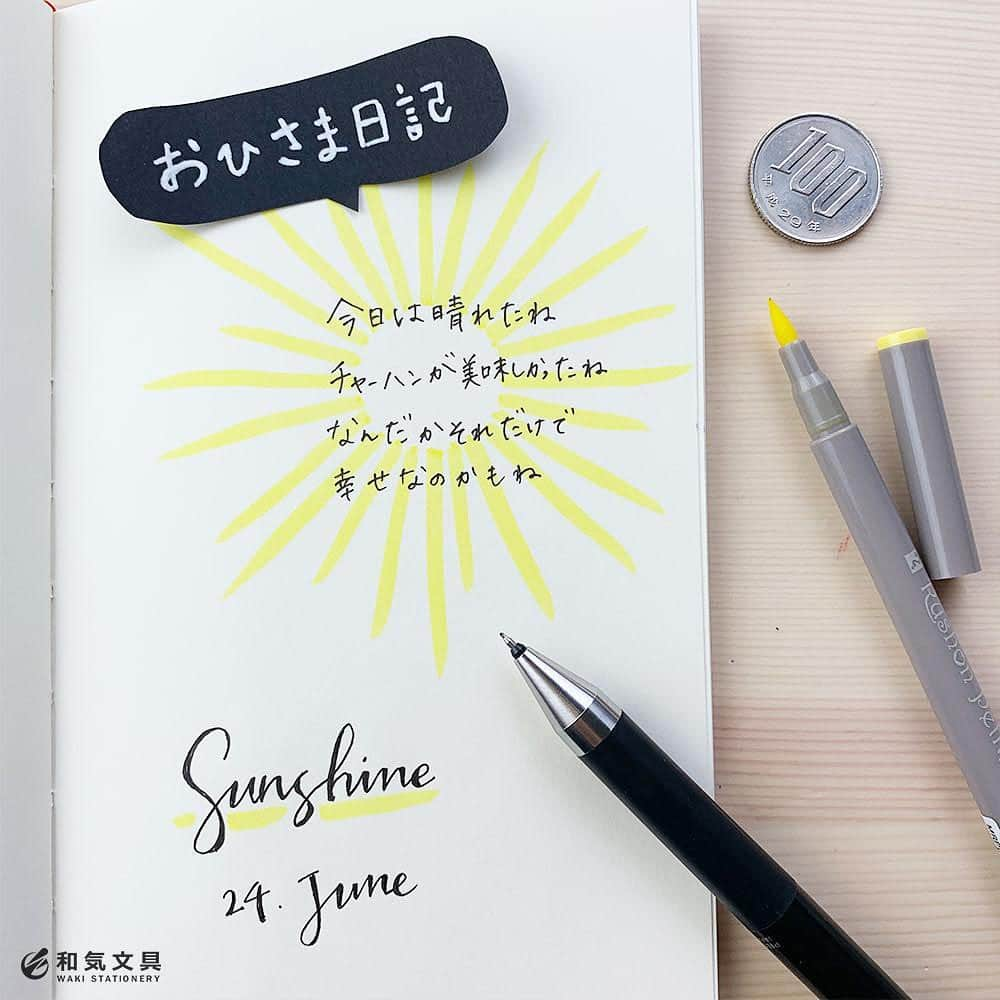 おひさま日記
今日は晴れたね
チャーハンが美味しかったね
なんだかそれだけで
幸せなのかもね
Sunshine
24. June
100
平成29年
Kushon
和気文具
WAKI STATIONERY